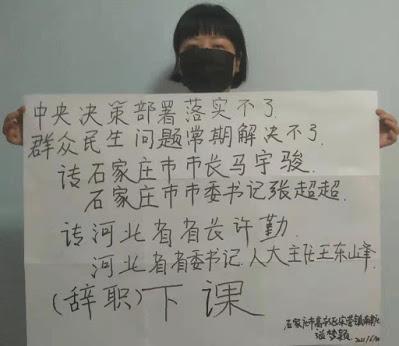 中央决策部署落实不了
群众民生问题常期解决不了
请石家庄市市长马宇骏
石家庄市市委书记张超超
请河北省省长许勤
河北省省委书记.人大主任王东山峰
(辞职)下课
石家庄市高新区宋营镇
谌梦颖